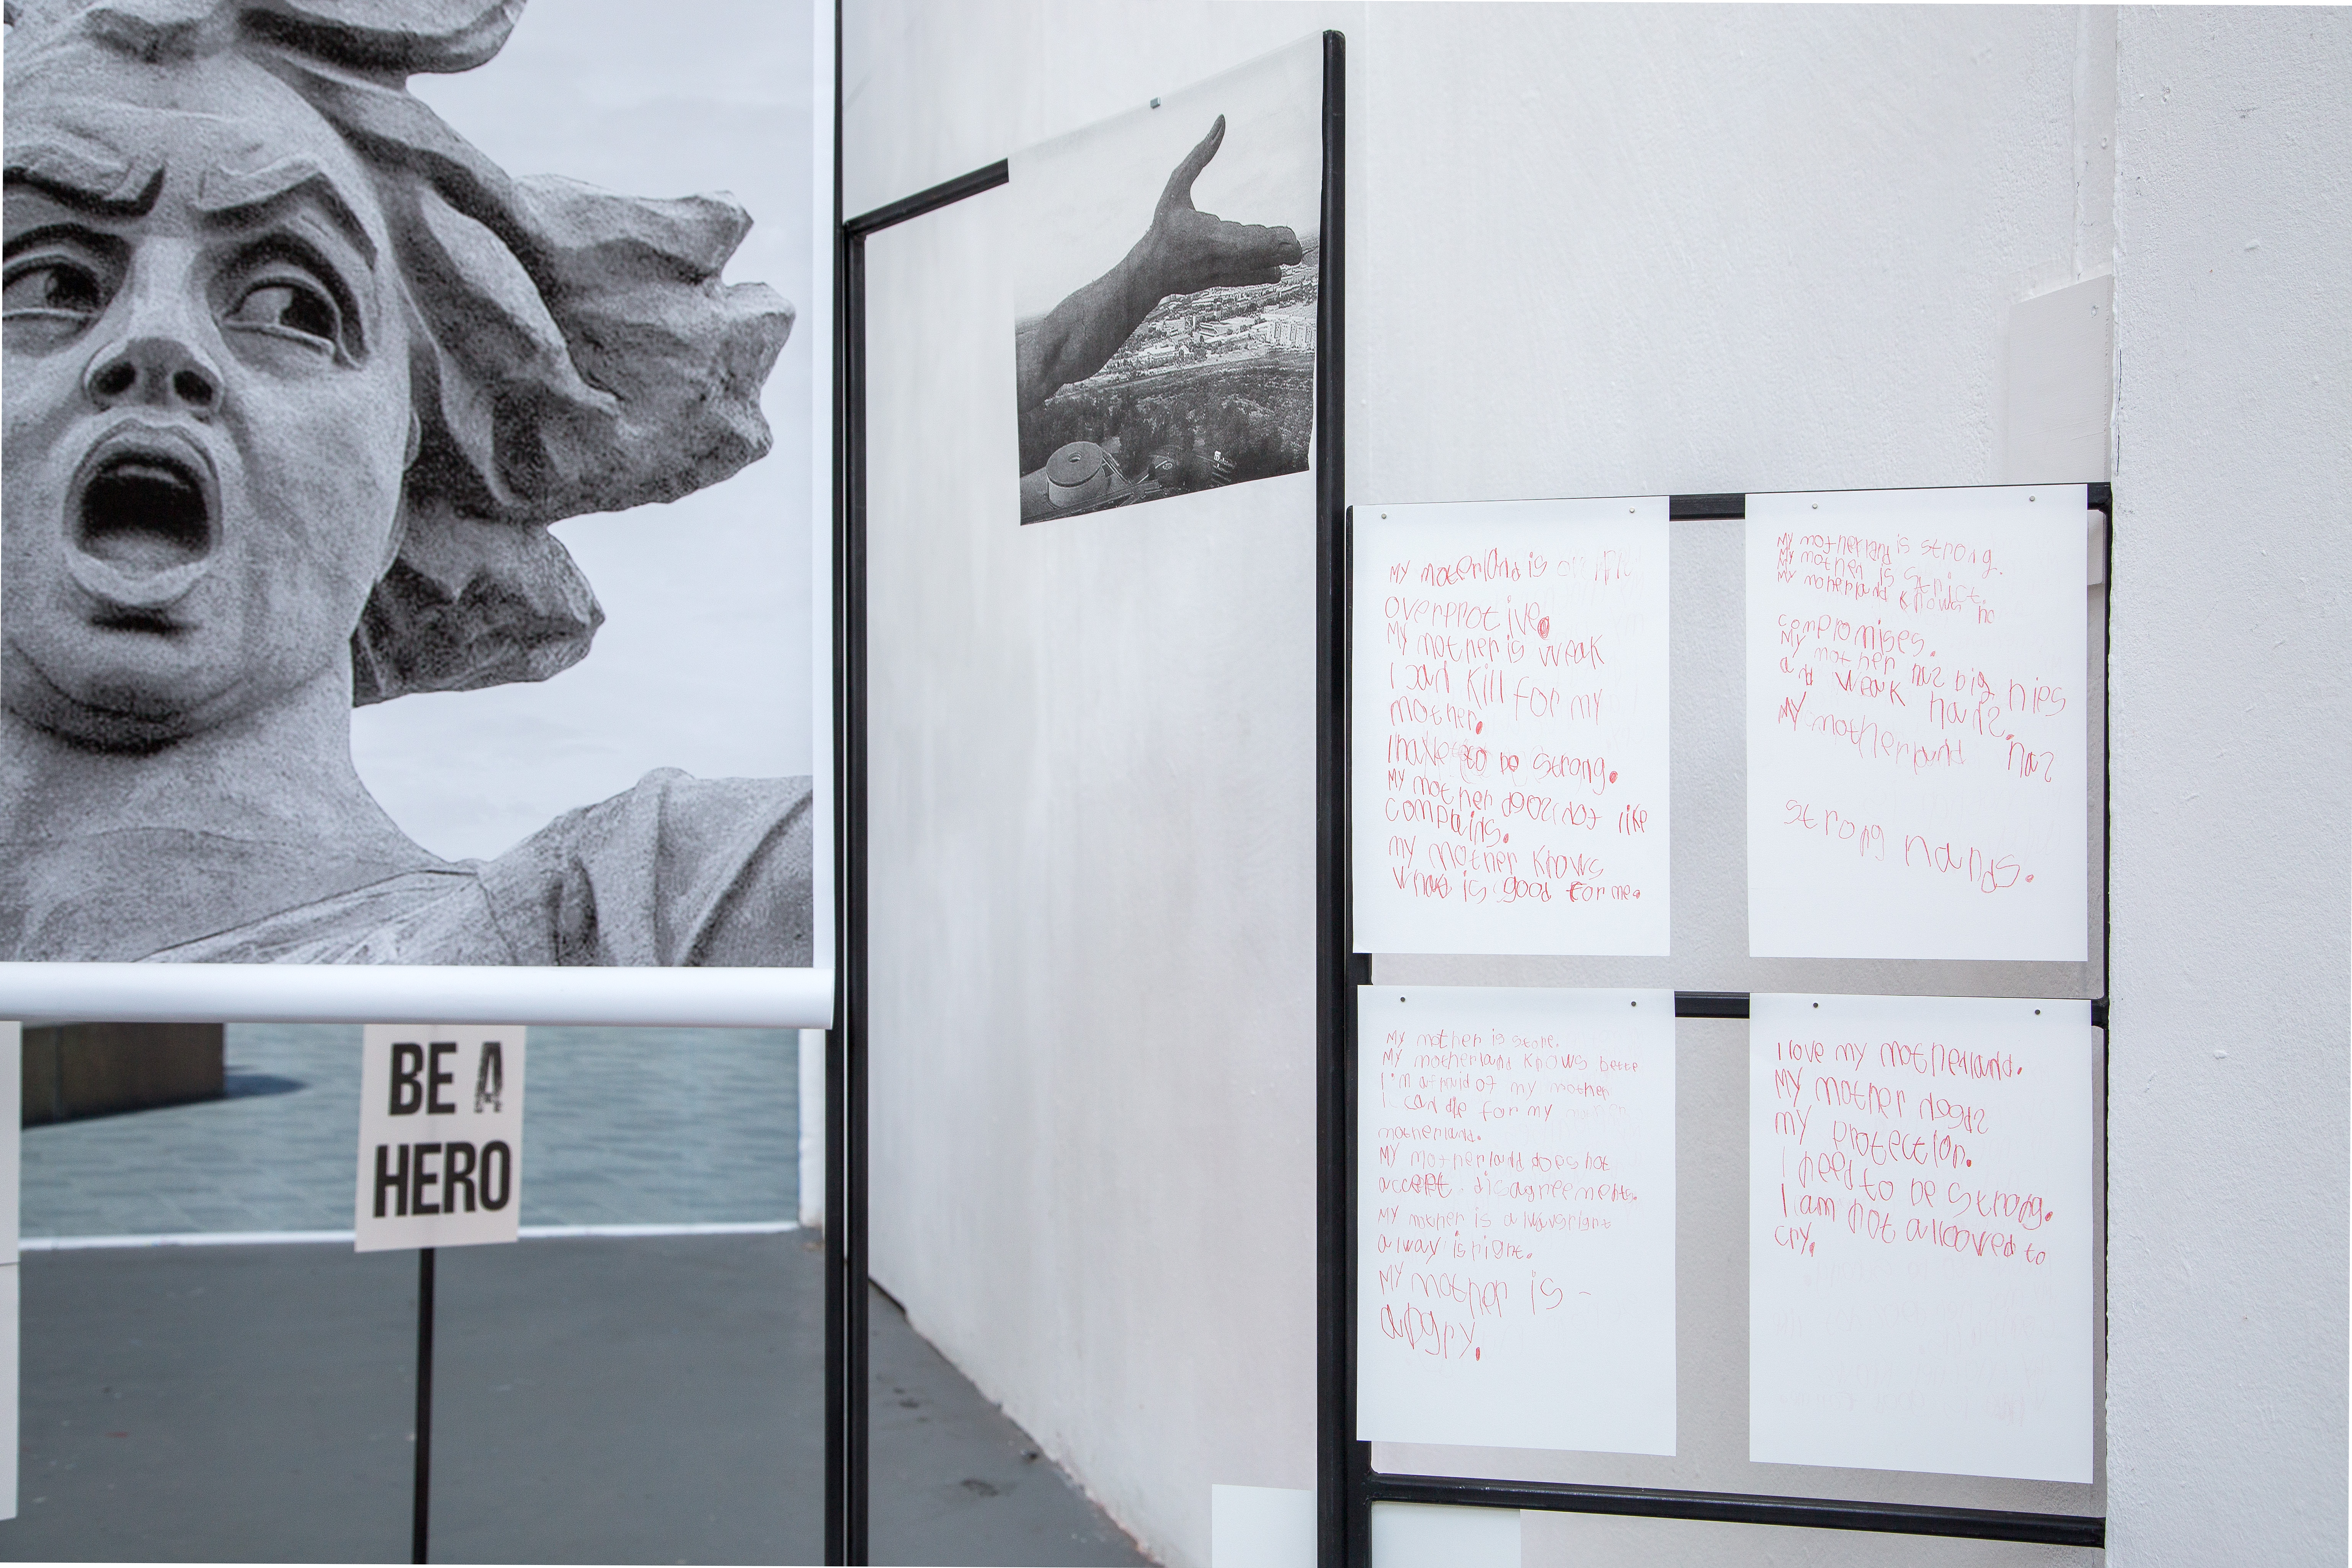 BE A
HERO
My moterland is
overprotive.
My mother is weak
I can kill for my
mother.
I have to be strong.
My mother doez not like
complains.
my mother knows
what is good for me.
My motherland is strong.
My mother is strict.
My moherland knows no
compromises.
My mother haz big hips
and weak hands.
My motherland haz
strong hands.
My mother is stone.
My motherland knows bette
I'm afraid of my mother
I can die for my
motherland.
My motherland does not
accept disagreements.
My mother is alwaysright
alway is right.
My mother is -
angry.
I love my motherland.
My mother needz
my protection.
I need to be strong.
I am not alloowed to
cry.